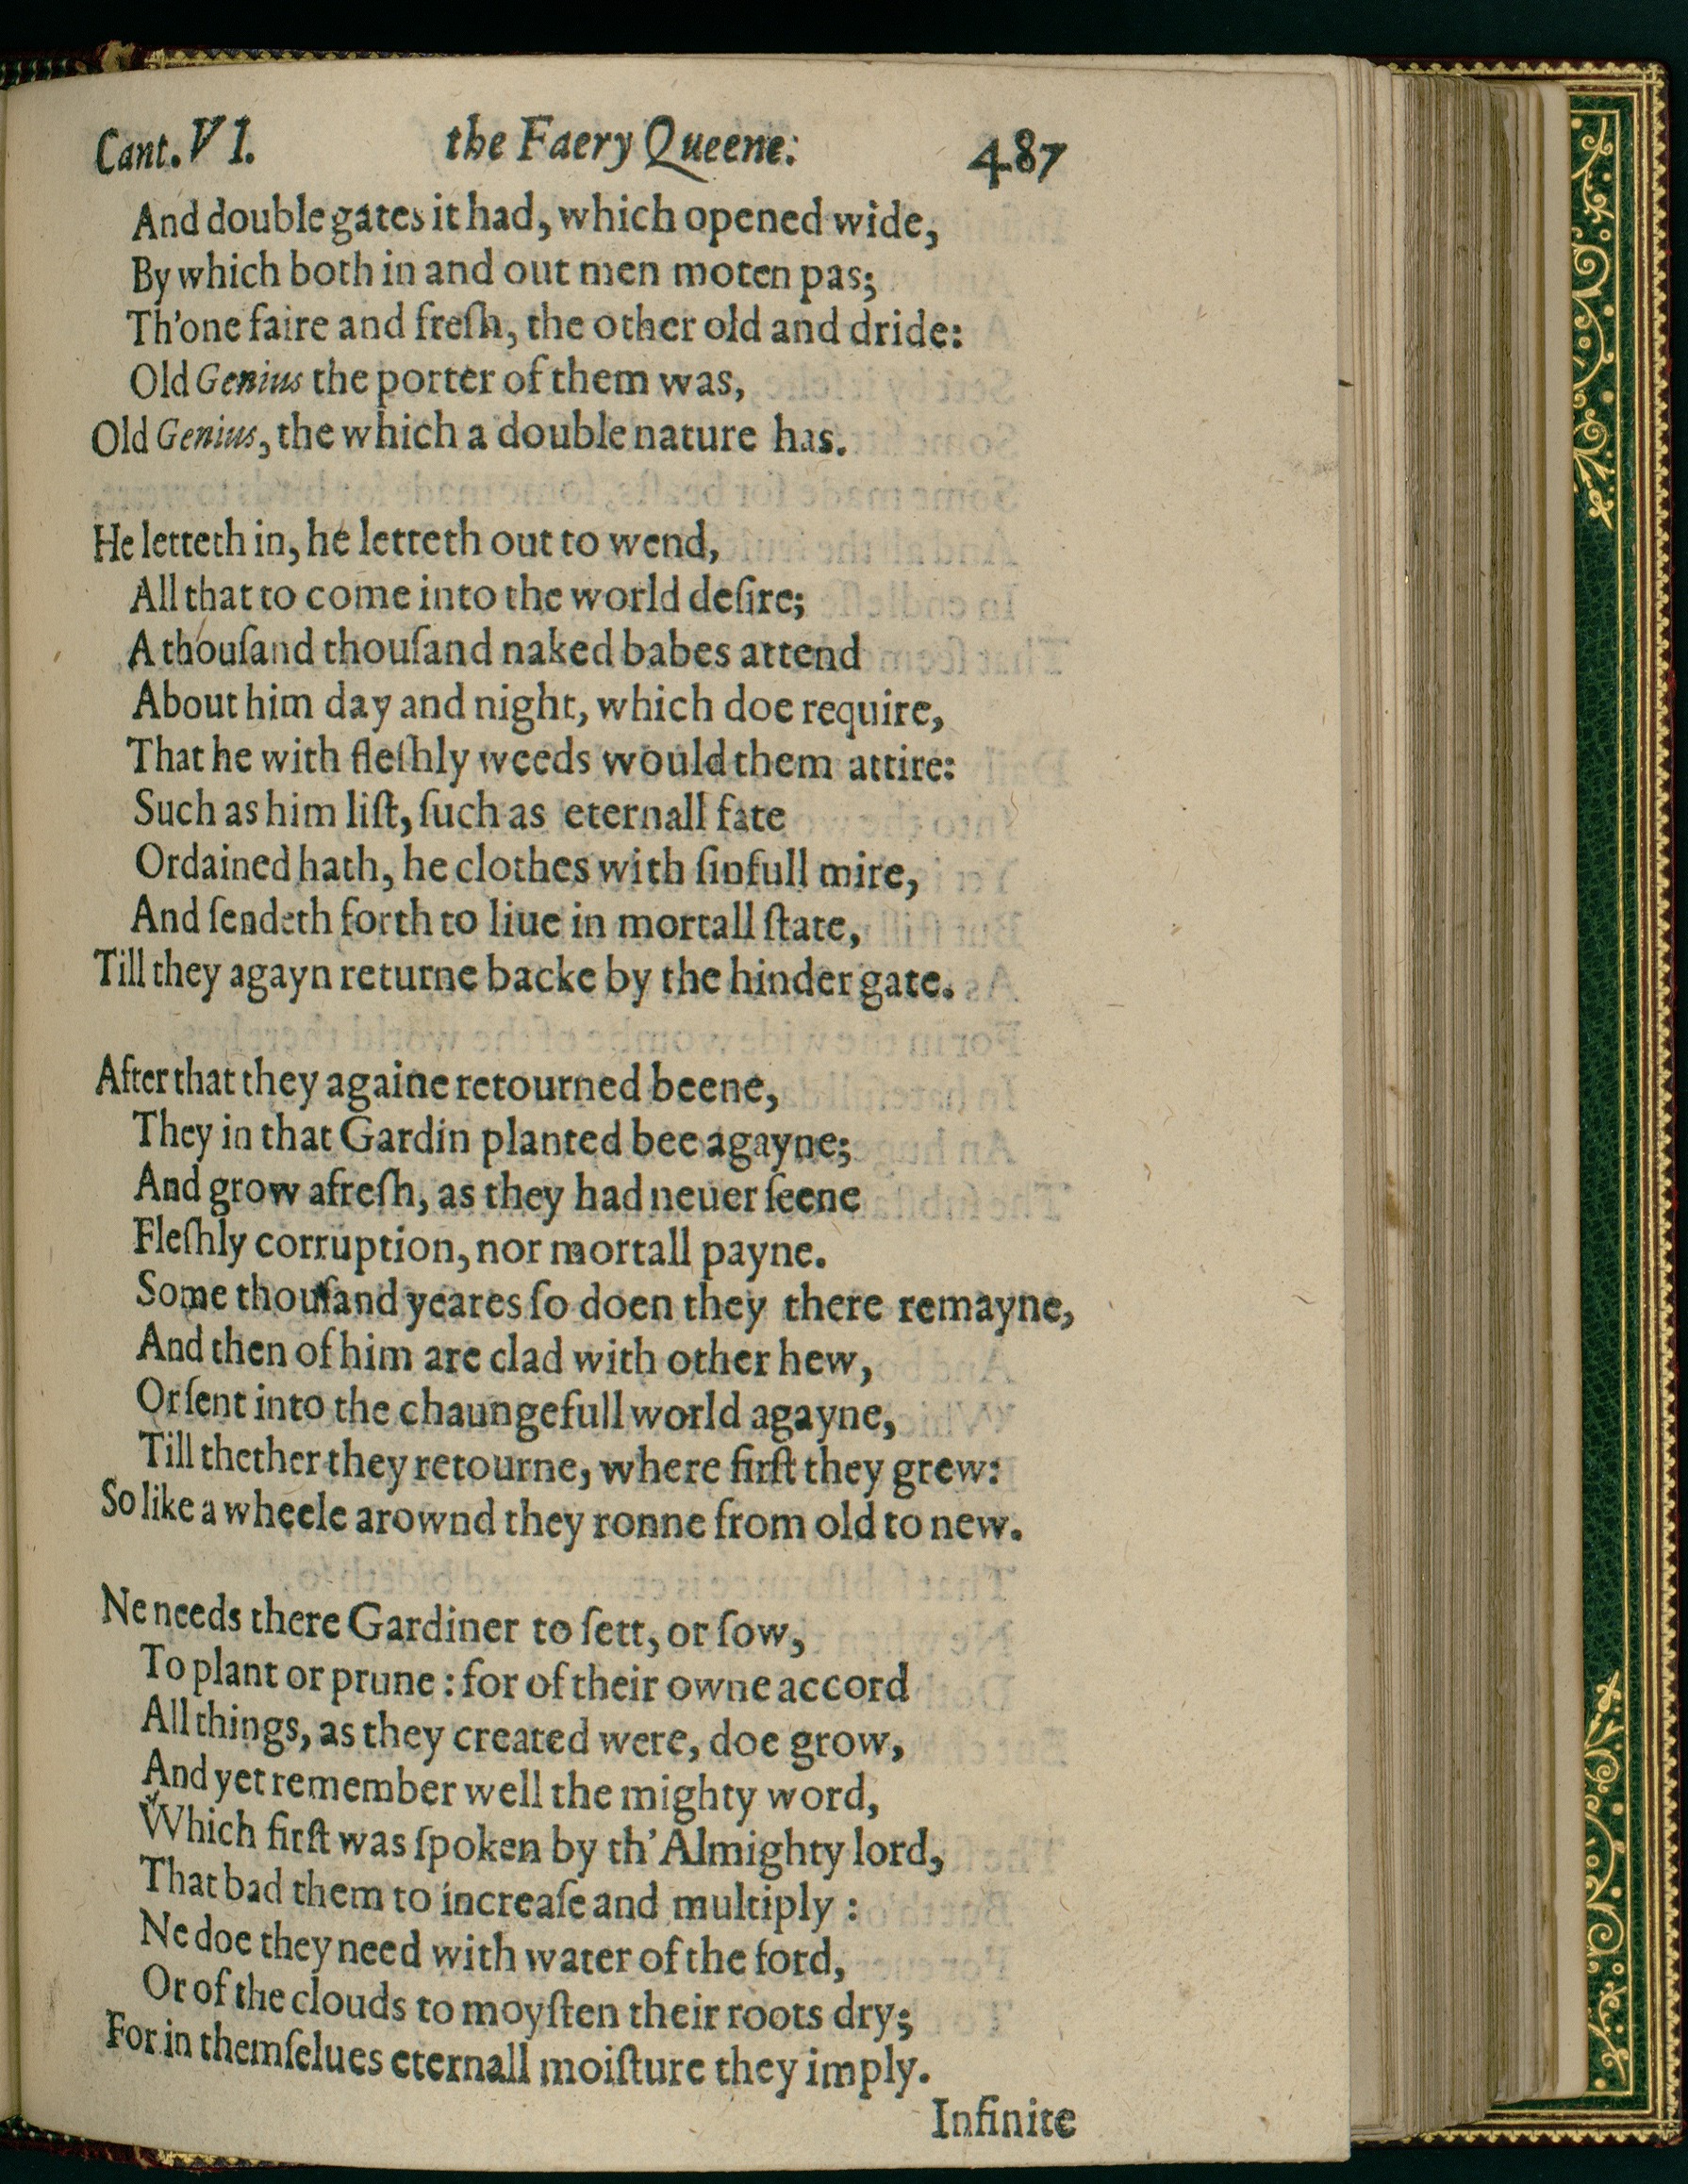 Cant. VI. the Faery Queene. 487
And double gates it had, which opened wide,
By which both in and out men moten pas;
Th'one faire and freſh, the other old and dride:
Old Genius the porter of them was,
Old Genius, the which a double nature has.
He letteth in, he letteth out to wend,
All that to come into the world deſire;
A thouſand thouſand naked babes attend
About him day and night, which doe require,
That he with fleſhly weeds would them attire:
Such as him liſt, ſuch as eternall fate
Ordained hath, he clothes with ſinfull mire,
And ſendeth forth to liue in mortall ſtate,
Till they agayn returne backe by the hinder gate.
After that they againe retourned beene,
They in that Gardin planted bee agayne;
And grow afreſh, as they had neuer ſeene
Fleſhly corruption, nor mortall payne.
Some thouſand yeares ſo doen they there remayne,
And then of him are clad with other hew,
Or ſent into the chaungefull world agayne,
Till thether they retourne, where firſt they grew:
So like a wheele arownd they ronne from old to new.
Ne needs there Gardiner to ſett, or ſow,
To plant or prune: for of their owne accord
All things, as they created were, doe grow,
And yet remember well the mighty word,
Which firſt was ſpoken by th'Almighty lord,
That bad them to increaſe and multiply:
Ne doe they need with water of the ford,
Or of the clouds to moyſten their roots dry;
For in themſelues eternall moiſture they imply.
Infinite